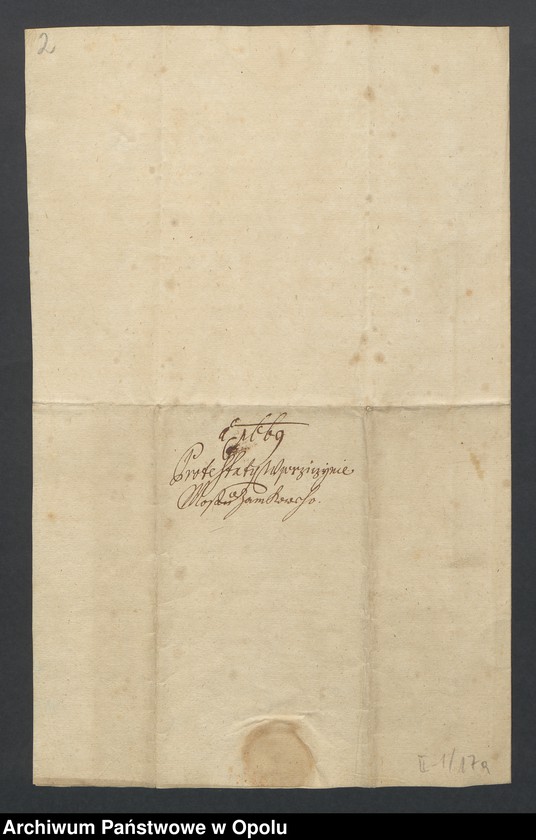 2
1669
Protestaty W przizynie
Mostu Zamkoweho.
II-1/17a
Archiwum Państwowe w Opolu